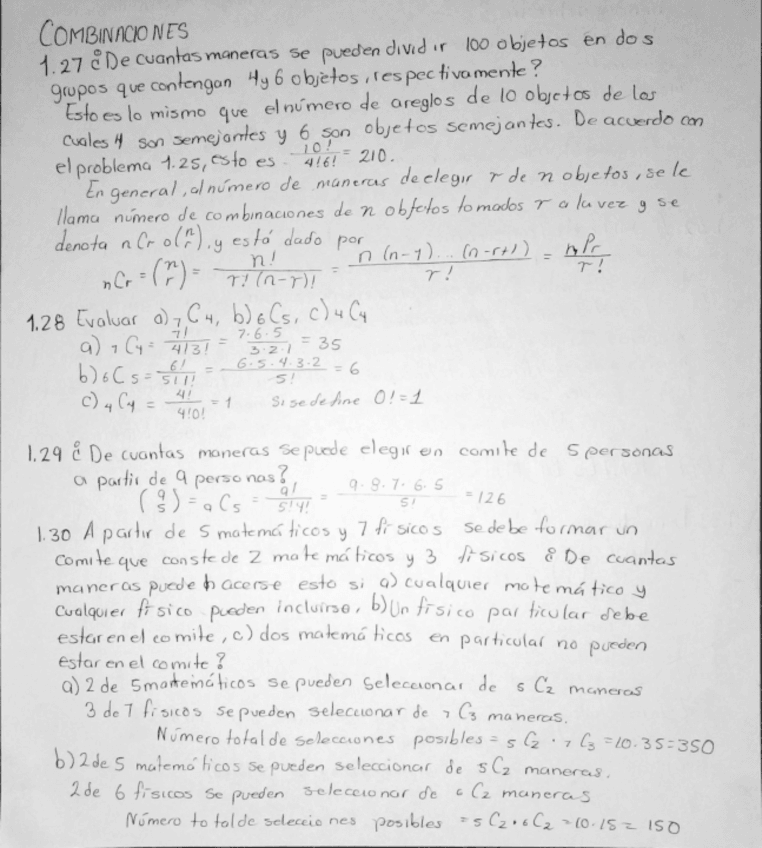 COMBINACIONES
1.27 ¿De cuantas maneras se pueden dividir 100 objetos en dos
grupos que contengan 4 y 6 objetos, respectivamente?
Esto es lo mismo que el número de areglos de 10 objetos de los
cuales 4 son semejantes y 6 son objetos semejantes. De acuerdo con
el problema 1.25, esto es 10!/4!6! = 210.
En general, al número de maneras de elegir r de n objetos, se le
llama número de combinaciones de n objetos tomados r a la vez y se
denota nCr o (n r), y está dado por
nCr = (n r) = n!/r!(n-r)! = n(n-1)...(n-r+1)/r! = nPr/r!
1.28 Evaluar a) 7C4, b) 6C5, c) 4C4
a) 7C4 = 7!/4!3! = 7·6·5/3·2·1 = 35
b) 6C5 = 6!/5!1! = 6·5·4·3·2/5! = 6
c) 4C4 = 4!/4!0! = 1 Si se define 0! = 1
1.29 ¿De cuantas maneras se puede elegir un comite de 5 personas
a partir de 9 personas?
(9 5) = 9C5 = 9!/5!4! = 9·8·7·6·5/5! = 126
1.30 A partir de 5 matemáticos y 7 físicos se debe formar un
comite que conste de 2 matemáticos y 3 físicos ¿De cuantas
maneras puede hacerse esto si a) cualquier matemático y
cualquier físico pueden incluirse, b) Un físico particular debe
estar en el comite, c) dos matemáticos en particular no pueden
estar en el comite?
a) 2 de 5 matemáticos se pueden seleccionar de 5C2 maneras
3 de 7 físicos se pueden seleccionar de 7C3 maneras.
Número total de selecciones posibles = 5C2 · 7C3 = 10·35 = 350
b) 2 de 5 matemáticos se pueden seleccionar de 5C2 maneras.
2 de 6 físicos se pueden seleccionar de 6C2 maneras
Número total de selecciones posibles = 5C2 · 6C2 = 10·15 = 150